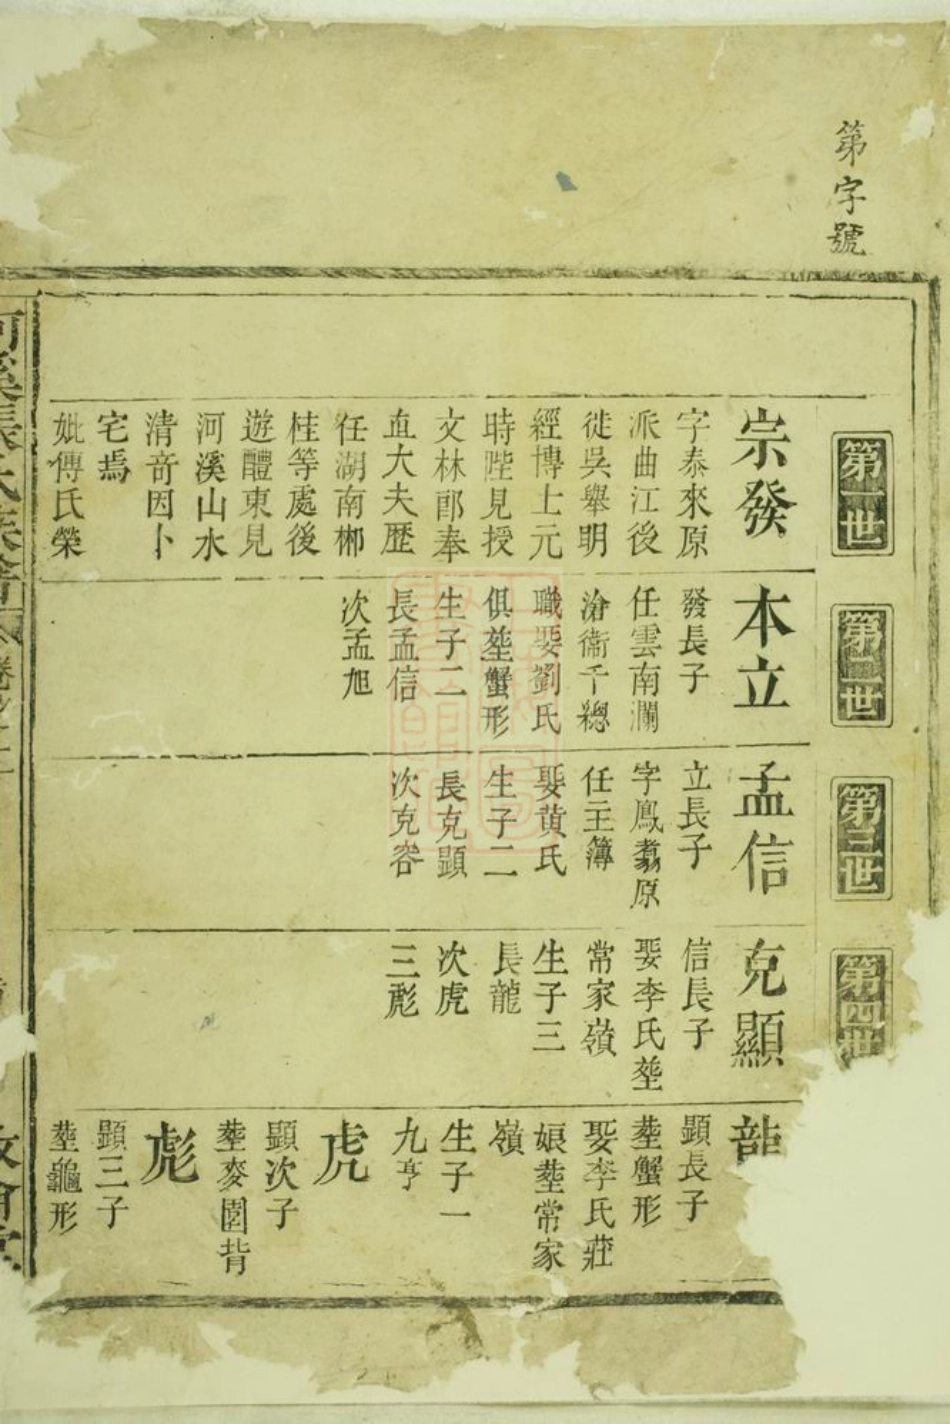 第字號
第一世
宗發
字泰來原
派曲江後
徙吳舉明
經博士元
時陛見授
文林郎奉
直大夫歷
任湖南郴
桂等處後
遊醴東見
河溪山水
清竒因卜
宅焉
妣傳氏榮
第二世
本立
發長子
任雲南瀾
滄衛千緫
職娶劉氏
俱塟蟹形
生子二
長孟信
次孟旭
第三世
孟信
立長子
字鳳翥原
任主簿
娶黄氏
生子二
長克顕
次克容
第四世
克顯
信長子
娶李氏塟
常家嶺
生子三
長龍
次虎
三彪
龍
顕長子
塟蟹形
娶李氏莊
娘塟常家
嶺
生子一
九亨
虎
顕次子
塟麥園背
彪
顕三子
塟龜形
河溪張氏